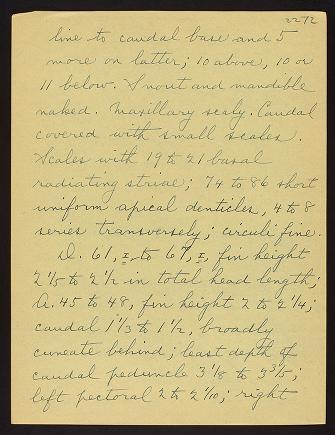 2272
line to caudal base and 5
more on latter; 10 above, 10 or
11 below. Snout and mandible
naked. Maxillary scaly. Caudal
covered with small scales.
Scales with 19 to 21 basal
radiating striae; 74 to 86 short
uniform apical denticles, 4 to 8
series transversely; circuli fine.
D. 61, I, to 67, I, fin height
2 1/5 to 2 1/2 in total head length;
A. 45 to 48, fin height 2 to 2 1/4;
caudal 1 1/3 to 1 1/2, broadly
cuneate behind; least depth of
caudal peduncle 3 1/8 to 3 3/5;
left pectoral 2 to 2 1/10; right